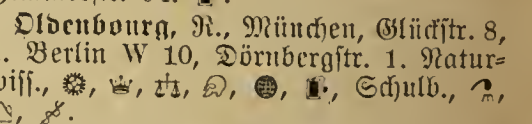 Oldenbourg, R., München, Glückstr. 8,
. Berlin W 10, Dörnbergstr. 1. Natur=
wiss., Schulb.,